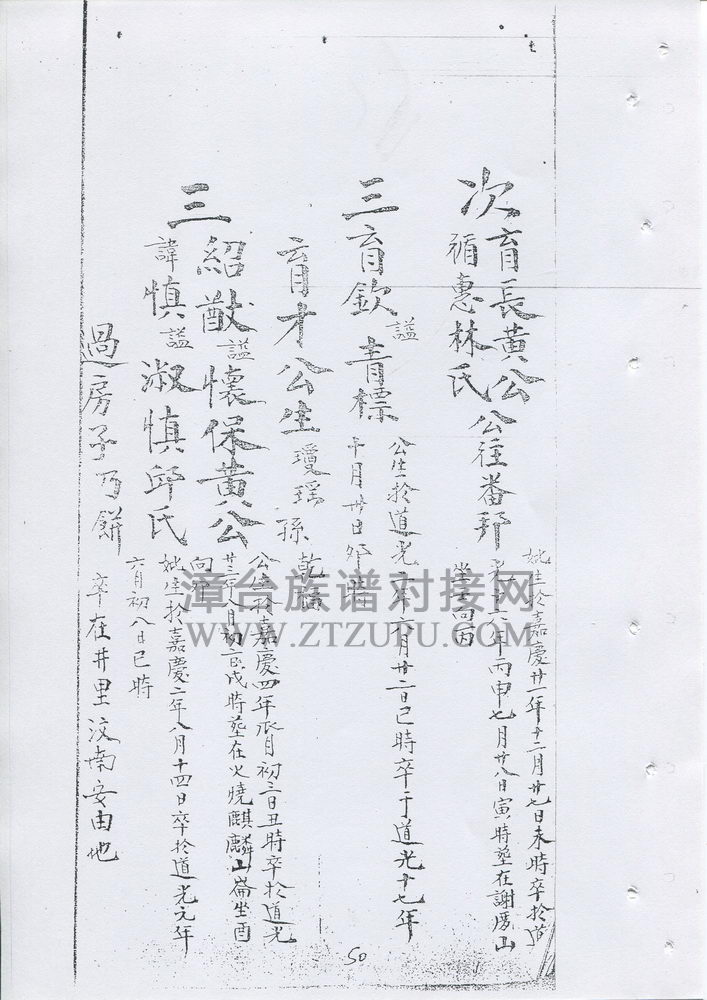 次育長黃公 公往番邦
循惠林氏
妣生於嘉慶廿一年十二月廿七日未時卒於道
光十六年丙申七月廿八日寅時塟在謝厝山
坐壬向丙
三育欽謚青標
公生於道光二年六月廿二日巳時卒于道光十七年
十月廿日卯時
育才公生瓊瑤孫乾福
三紹猷謚懷保黃公
公生於嘉慶四年 月初三日丑時卒於道光
廿三年八月初二日戌時塟在火燒麒麟山崙坐酉
向卯
諱慎謚淑慎邱氏
妣生於嘉慶二年八月十四日卒於道光元年
六月初八日巳時
過房子乃餅 卒在井里汶南安由地
50
漳台族谱对接网
WWW.ZTZUPU.COM